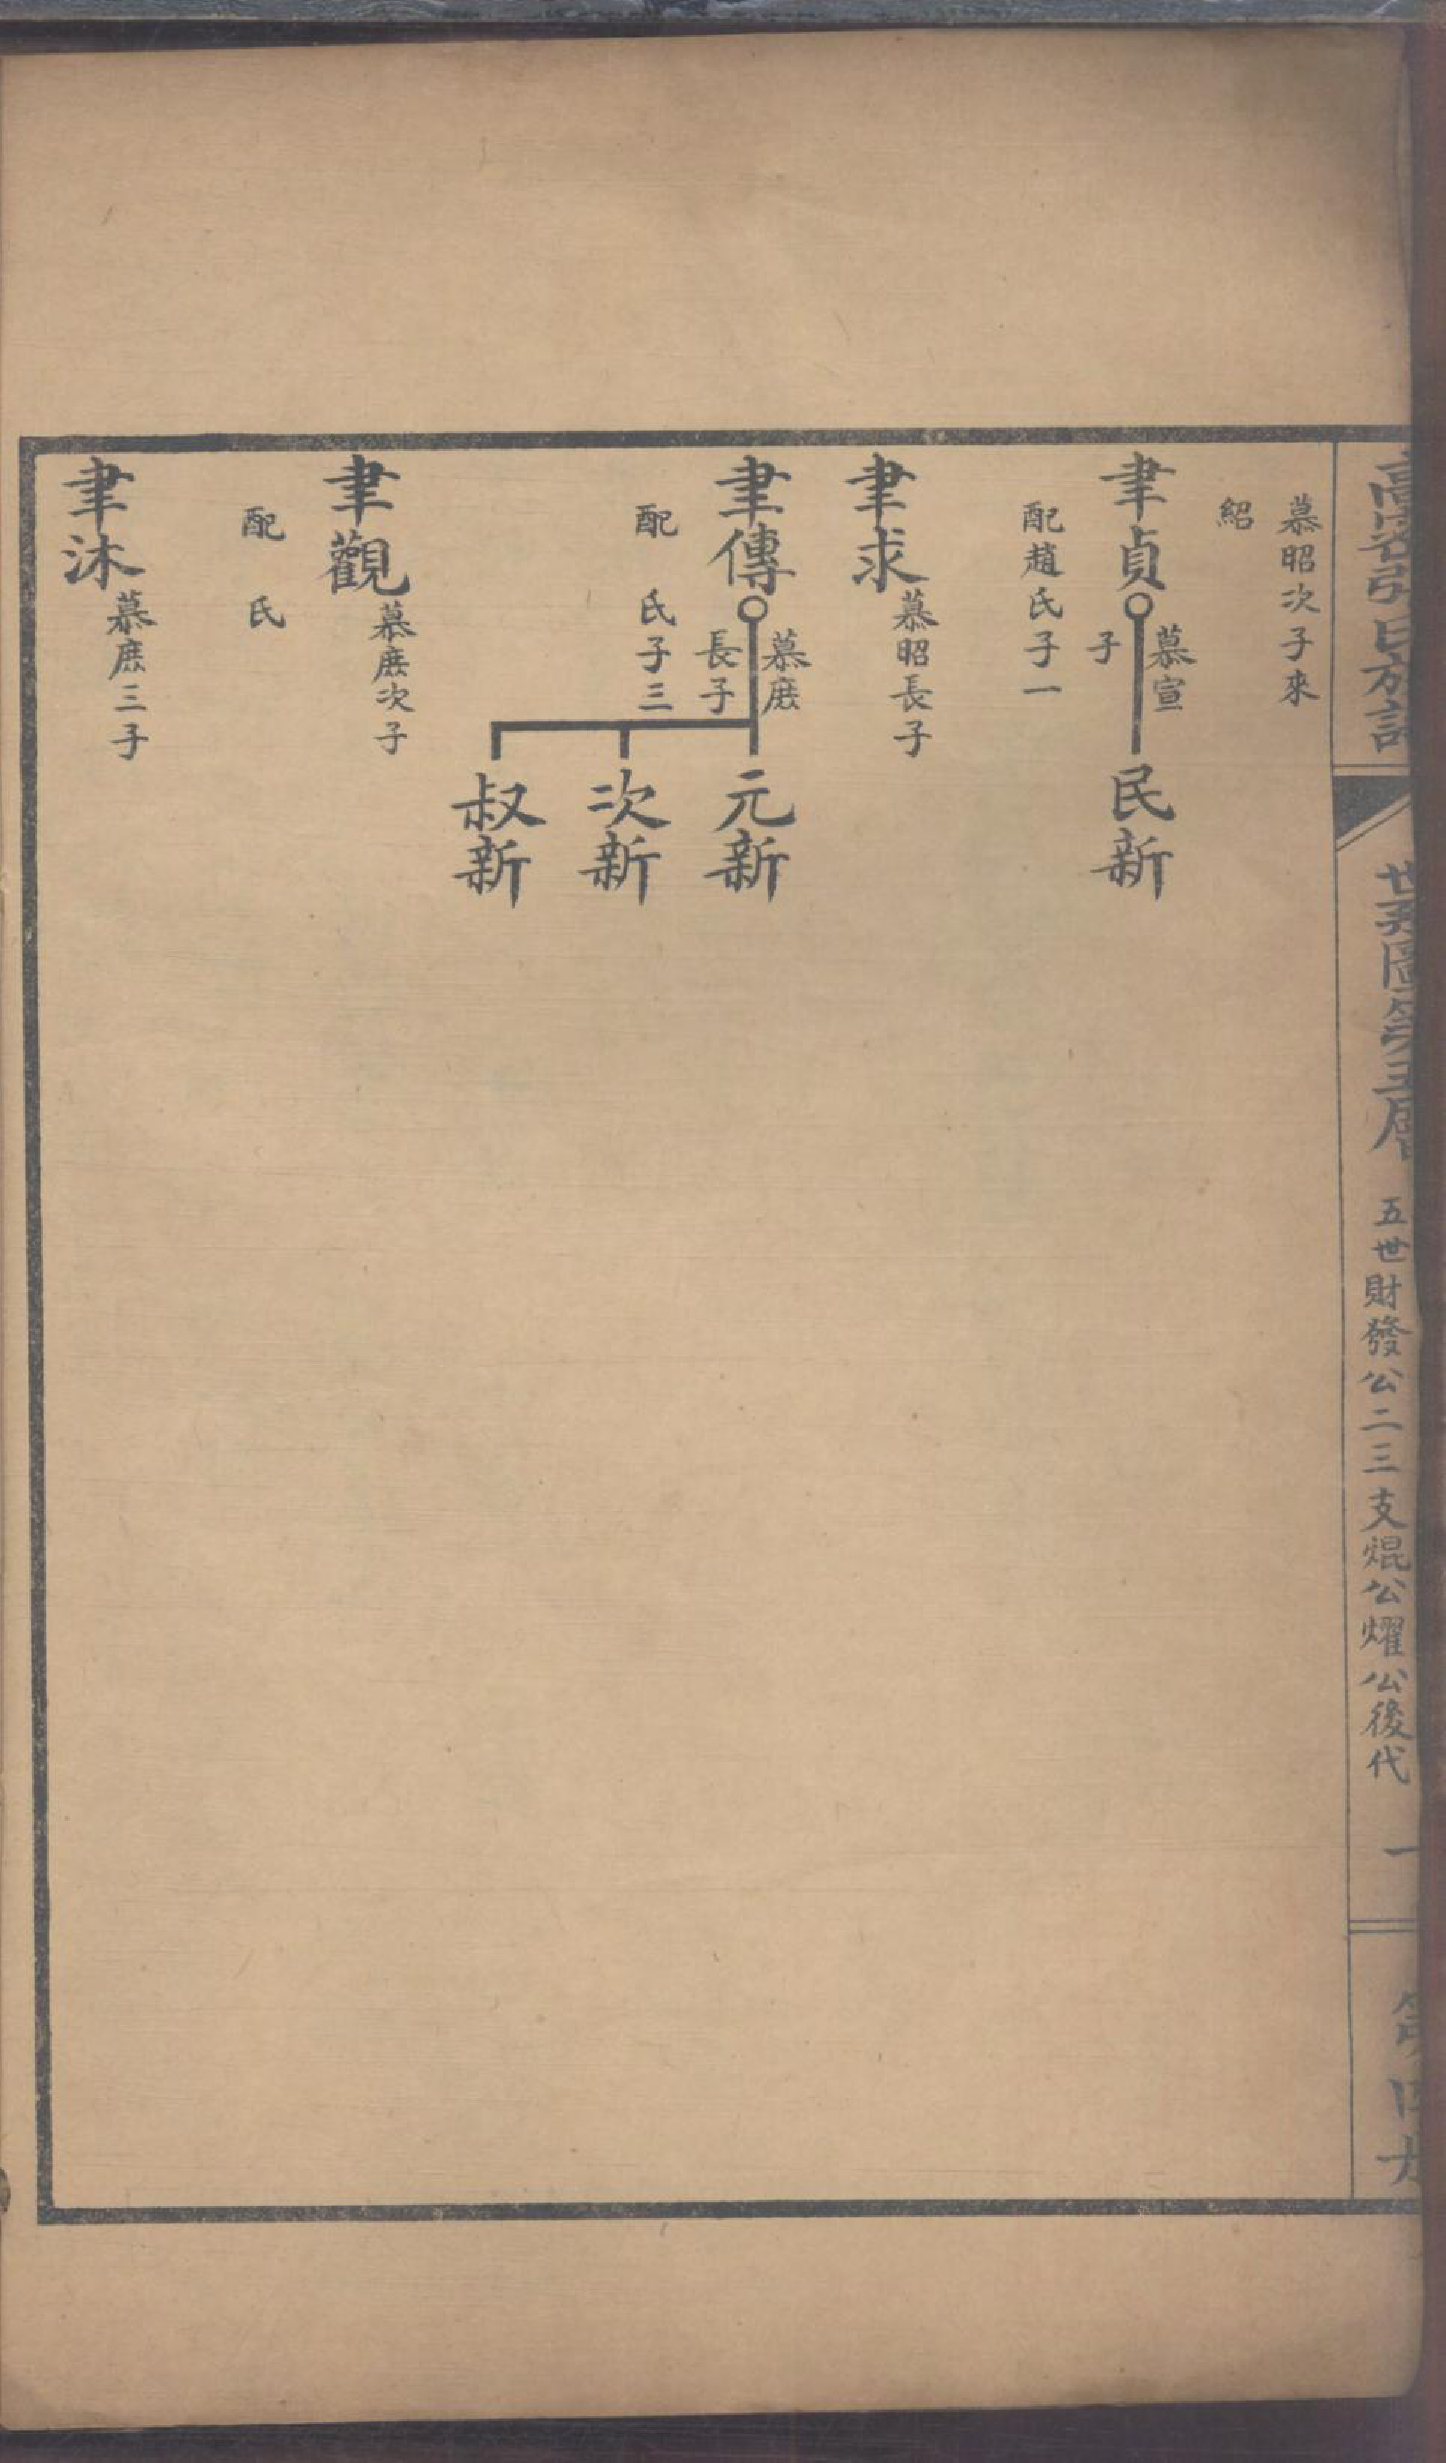 高密
氏族譜
世系圖第五層
五世財發公二三支焜公燿公後代
一
第四
慕昭次子來
紹
聿貞
慕宣
子
民新
配趙氏子一
聿求
慕昭長子
聿傳
慕庶
長子
元新
次新
叔新
配 氏子三
聿觀
慕庶次子
配 氏
聿沐
慕庶三子